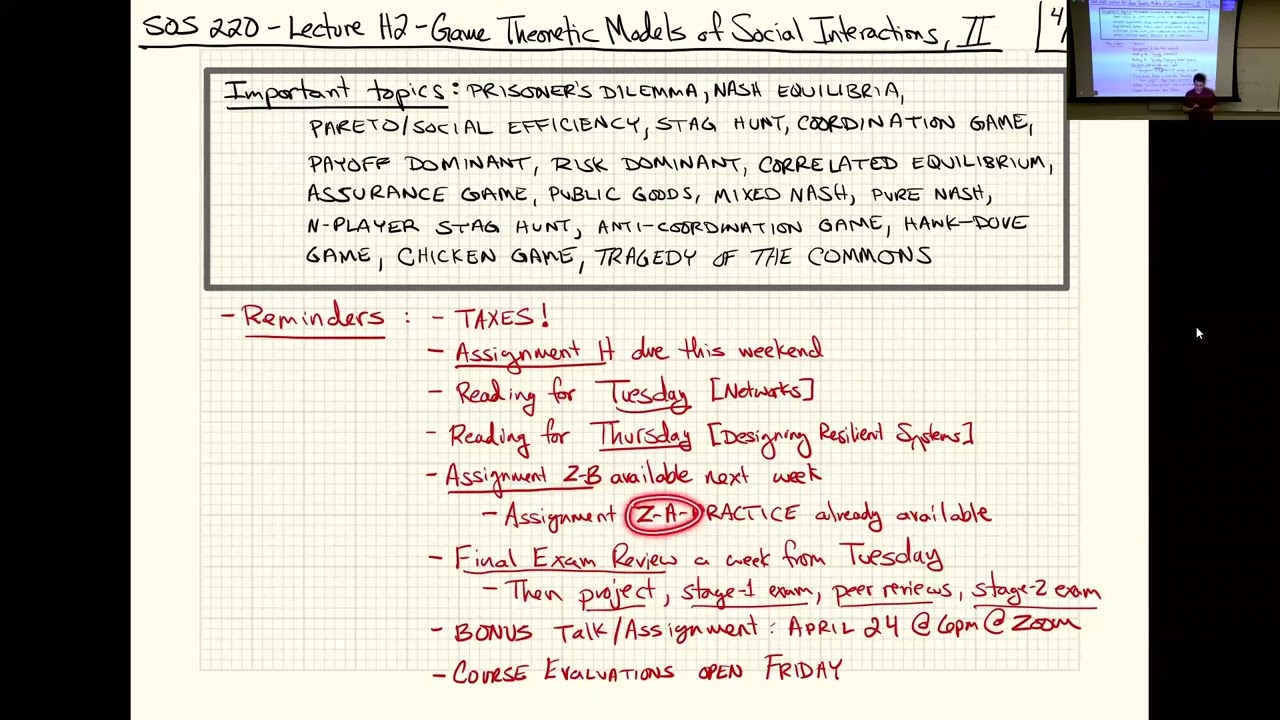 SOS 220 - Lecture H2 - Game Theoretic Models of Social Interactions, II
Important topics: PRISONER'S DILEMMA, NASH EQUILIBRIA,
PARETO/SOCIAL EFFICIENCY, STAG HUNT, COORDINATION GAME,
PAYOFF DOMINANT, RISK DOMINANT, CORRELATED EQUILIBRIUM,
ASSURANCE GAME, PUBLIC GOODS, MIXED NASH, PURE NASH,
N-PLAYER STAG HUNT, ANTI-COORDINATION GAME, HAWK-DOVE
GAME, CHICKEN GAME, TRAGEDY OF THE COMMONS
- Reminders: - TAXES!
- Assignment H due this weekend
- Reading for Tuesday [Networks]
- Reading for Thursday [Designing Resilient Systems]
- Assignment Z-B available next week
- Assignment Z-A-PRACTICE already available
- Final Exam Review a week from Tuesday
- Then project, stage-1 exam, peer reviews, stage-2 exam
- BONUS Talk/Assignment: APRIL 24 @ 6pm @ Zoom
- COURSE EVALUATIONS OPEN FRIDAY